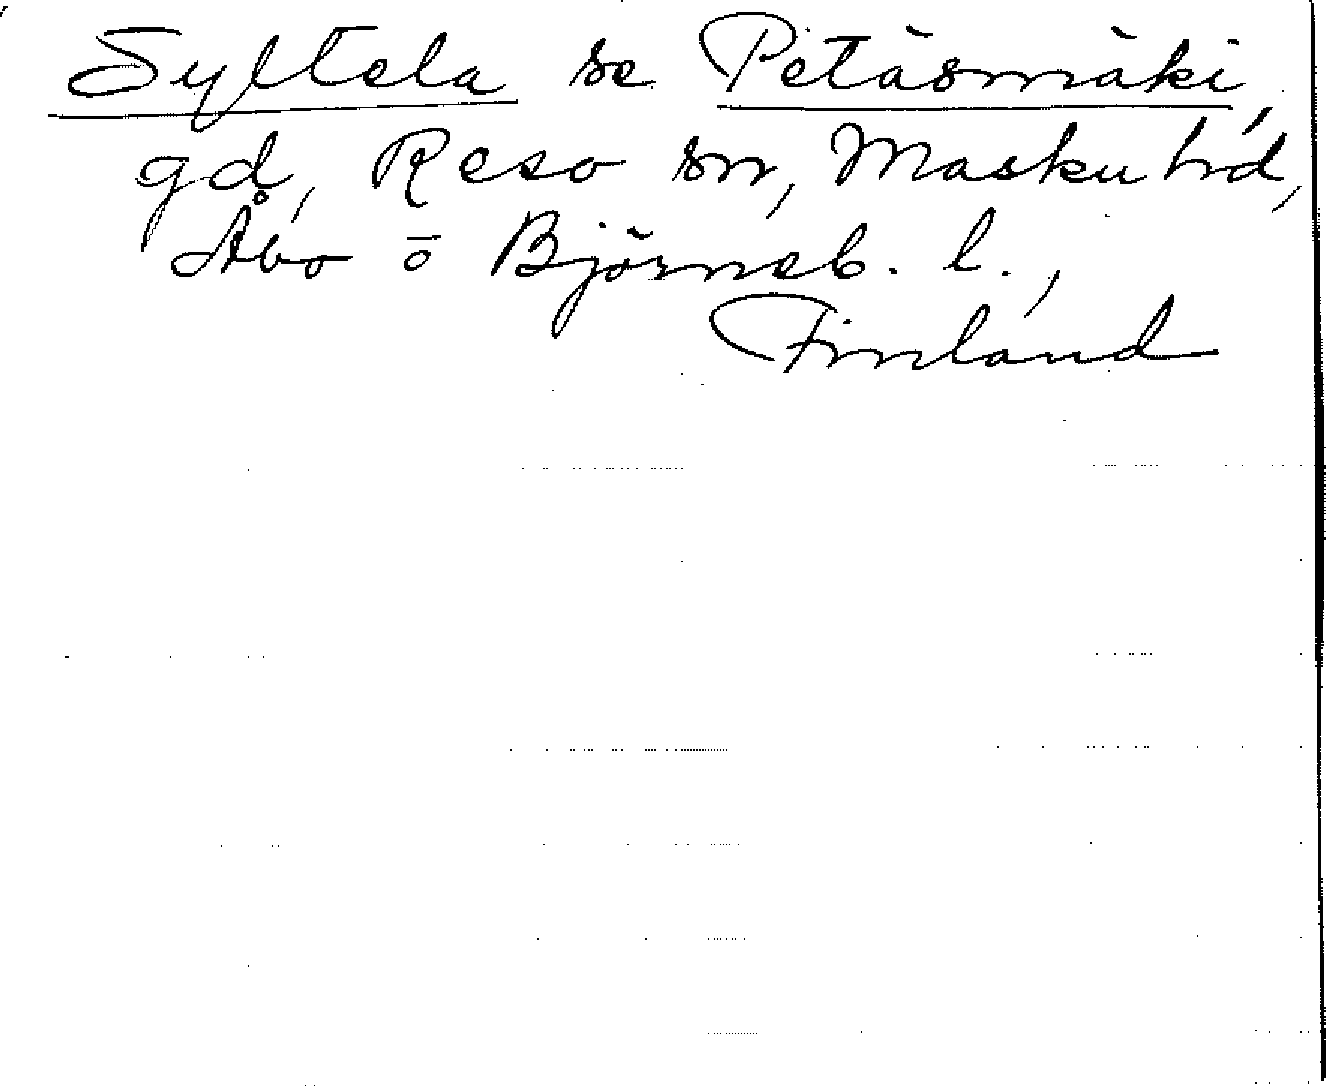 Syltela se Petäsmäki,
gd, Reso sn, Masku hd,
Åbo ō Björneb. l.,
Finland